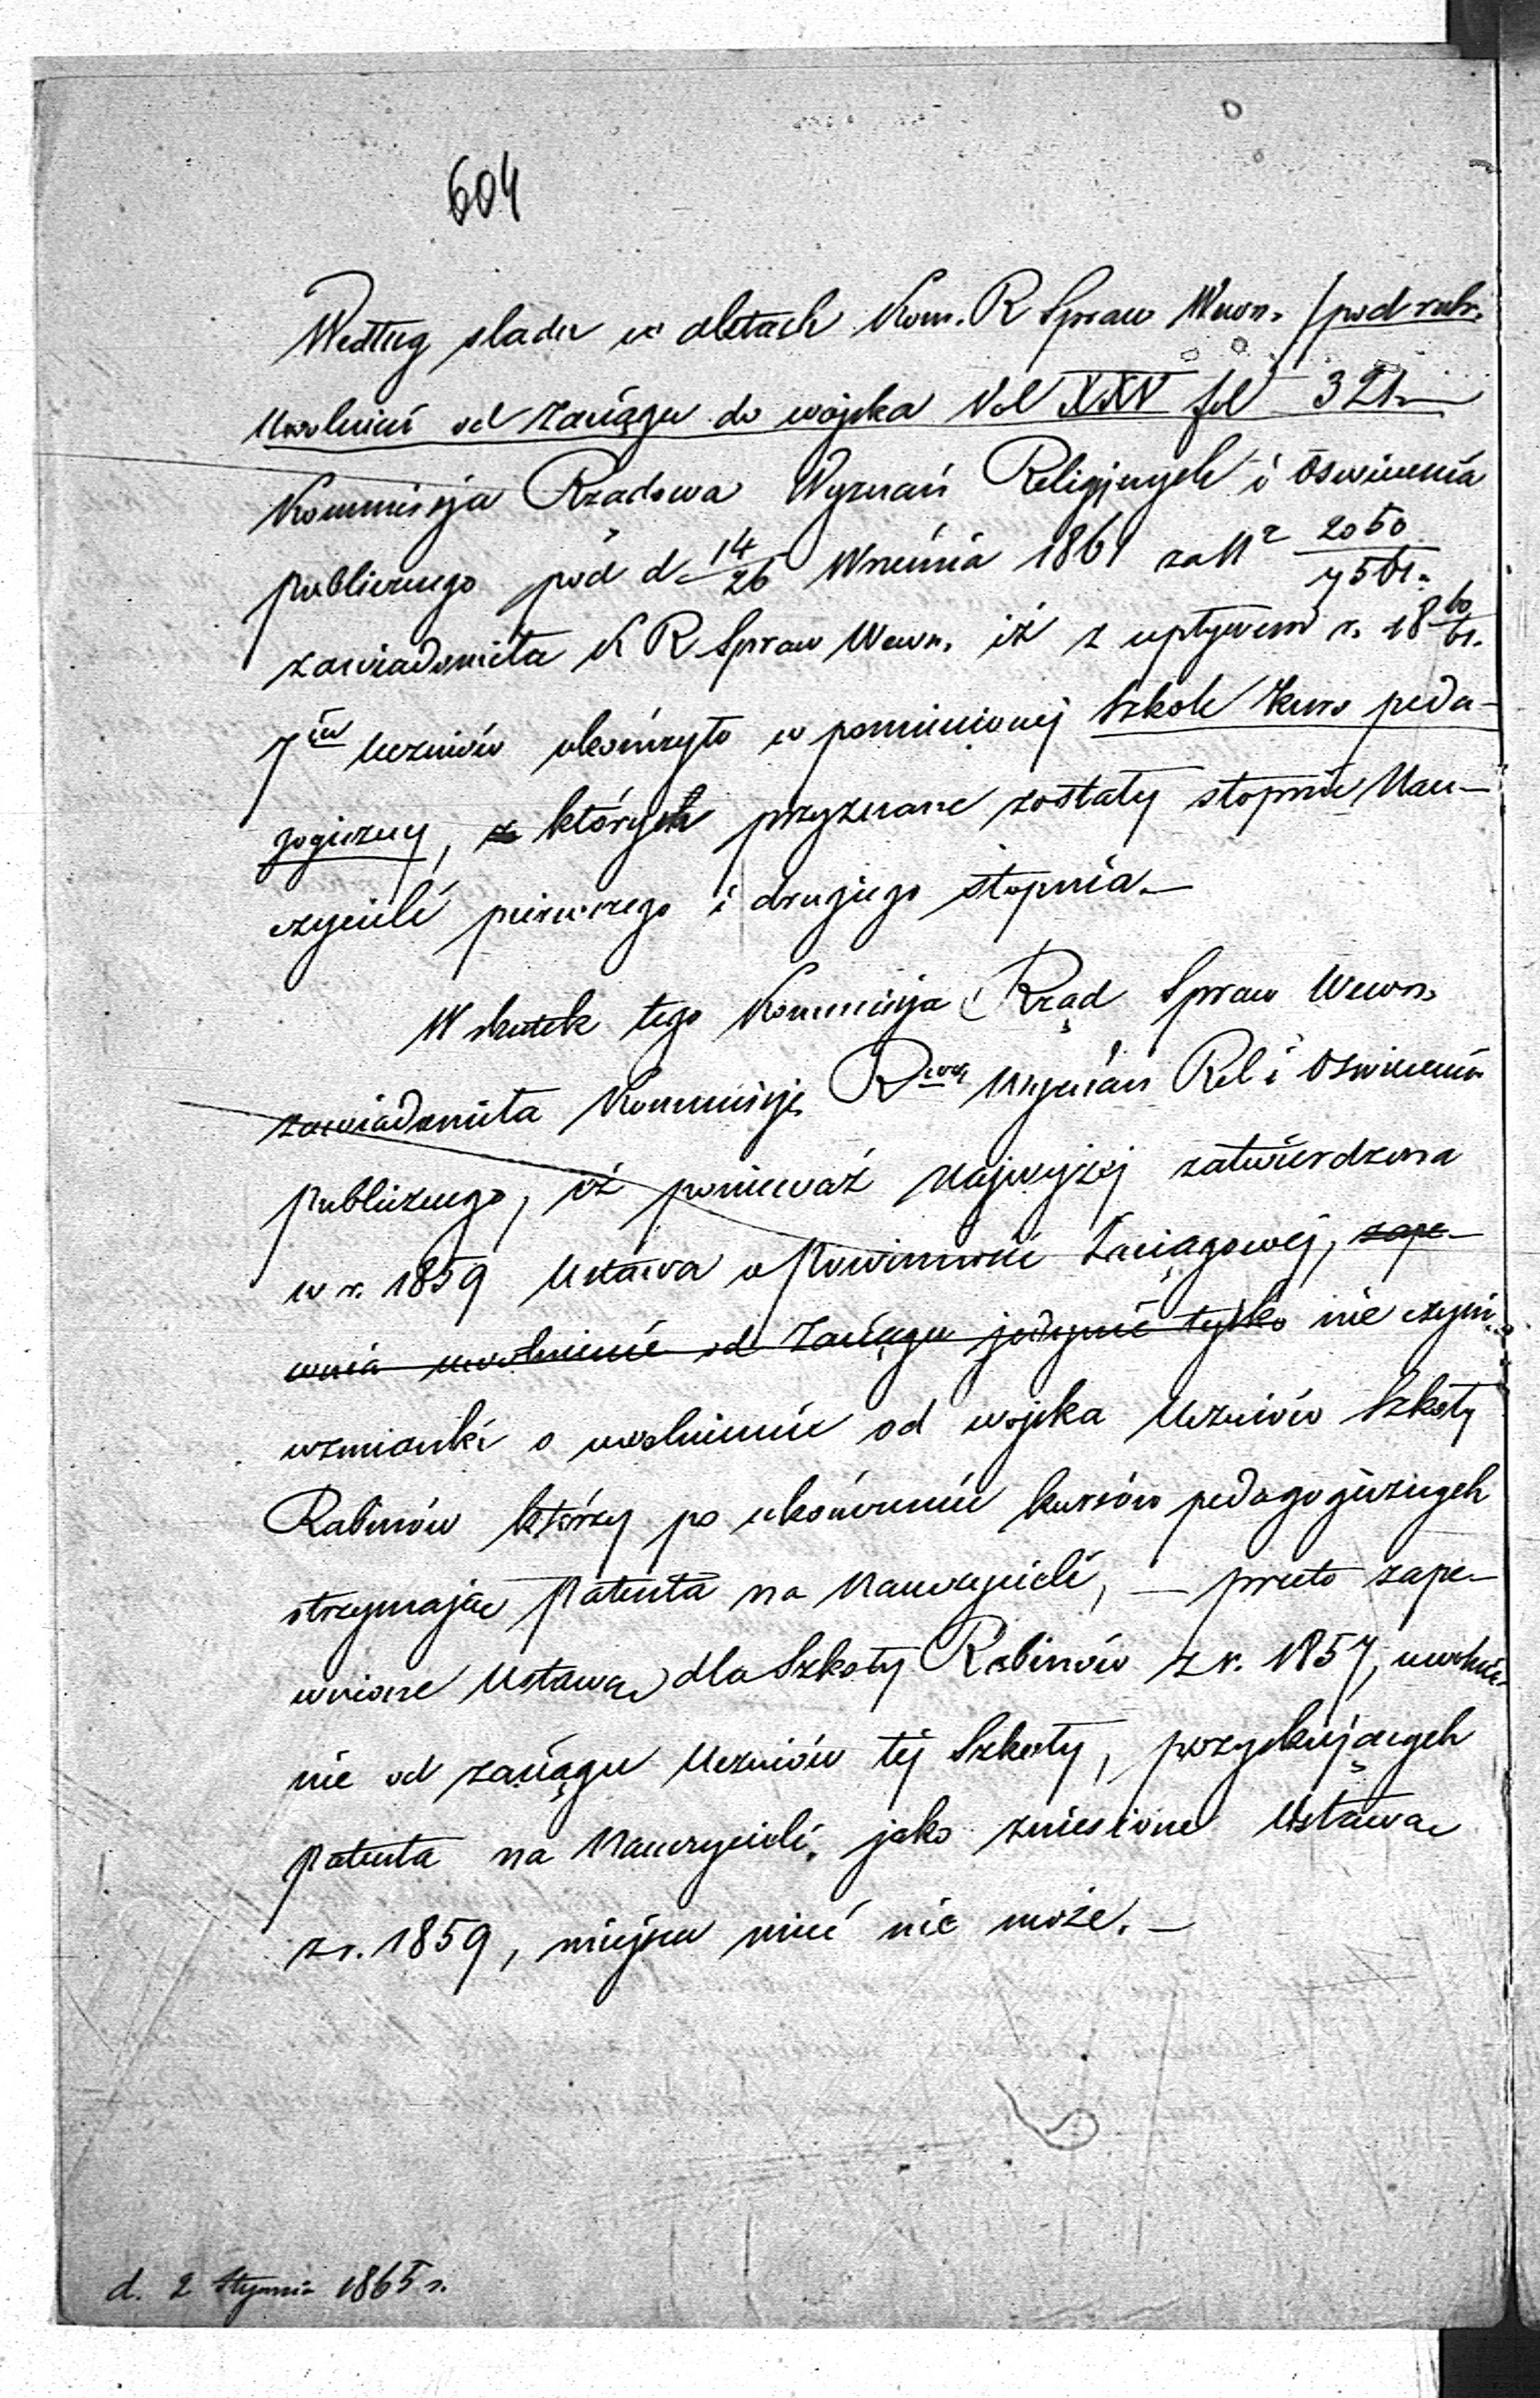 604
Według śladu w aktach Kom. R Spraw Wewn. /pod rubr.
Uwolnień od zaciągu do wojska Vol XXV fol 321.—
Kommissja Rządowa Wyznań Religijnych i Oświecenia
publicznego pod d 14/26 Września 1861 za Nr 2050/7561.
zawiadomiła K R Spraw Wewn. iż z upływem r. 1860/61.
7iu uczniów ukończyło w pomienionej Szkole kurs peda-
gogiczny, którym przyznane zostały stopnie Nau-
czycieli pierwszego i drugiego stopnia.—
W skutek tego Kommissja Rząd Spraw Wewn.
zawiadomiła Kommissję Rwą Wyznań Rel i Oświecenia
publicznego, iż ponieważ Najwyżej zatwierdzona
w r. 1859 Ustawa o Powinności Zaciągowej, zape-
wnia uwolnienie od Zaciągu jedynie tylko nie czyni
wzmianki o uwolnieniu od wojska Uczniów Szkoły
Rabinów którzy po ukończeniu kursów pedagogicznych
otrzymają Patenta na Nauczycieli, — przeto zape-
wnione Ustawą dla Szkoły Rabinów z r. 1857, uwolnie-
nie od zaciągu Uczniów tej Szkoły, pozyskujących
Patenta na Nauczycieli, jako zniesione Ustawą
z r. 1859, miejsca mieć nie może. —
d. 2 Stycznia 1865 r.